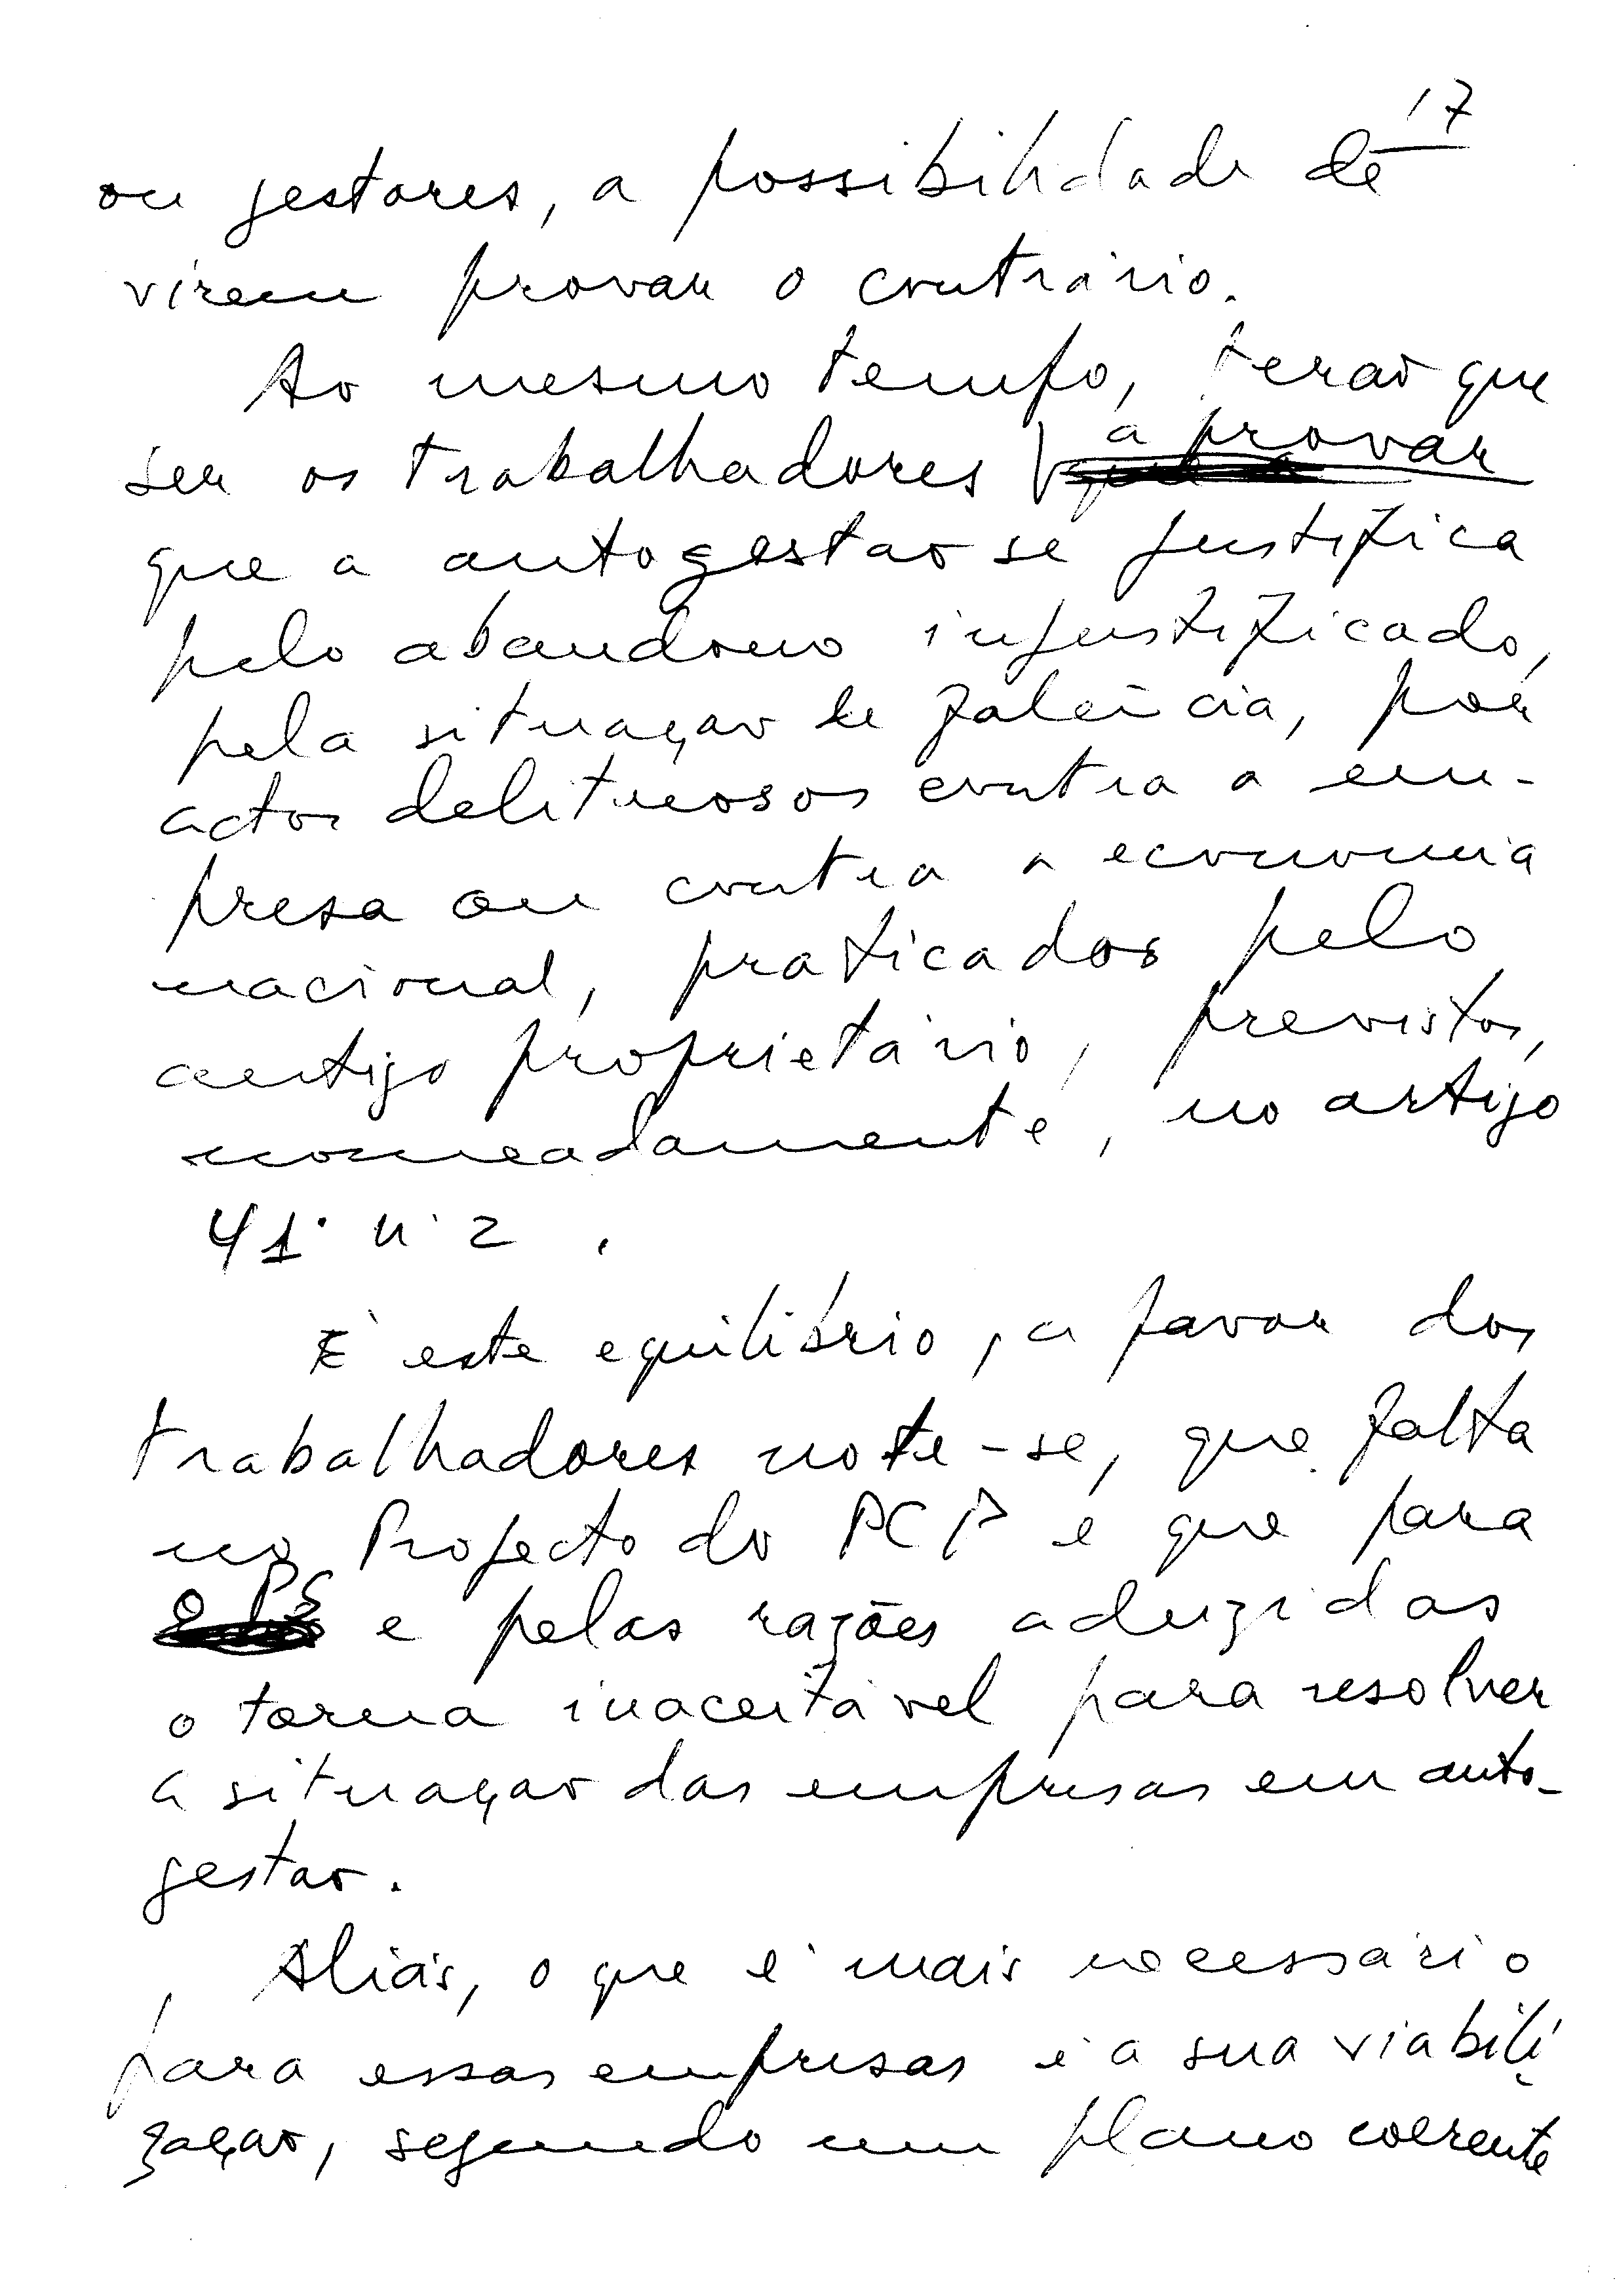 17
ou gestores, a possibilidade de
virem provar o contrário.
Ao mesmo tempo, terao que
ser os trabalhadores a provar
que a autogestao se justifica
pelo abandono injustificado,
pela situaçao de falência, por
actos delituosos contra a em-
presa ou contra a economia
nacional, praticados pelo
antigo proprietário, previstos,
nomeadamente, no artigo
41º nº 2.
É este equilibrio, a favor dos
trabalhadores note-se, que falta
no Projecto do PCP e que para
o PS e pelas razões aduzidas
o torna inaceitável para resolver
a situaçao das empresas em auto-
gestao.
Aliás, o que é mais necessário
para essas empresas é a sua viabili
zaçao, segundo um plano coerente